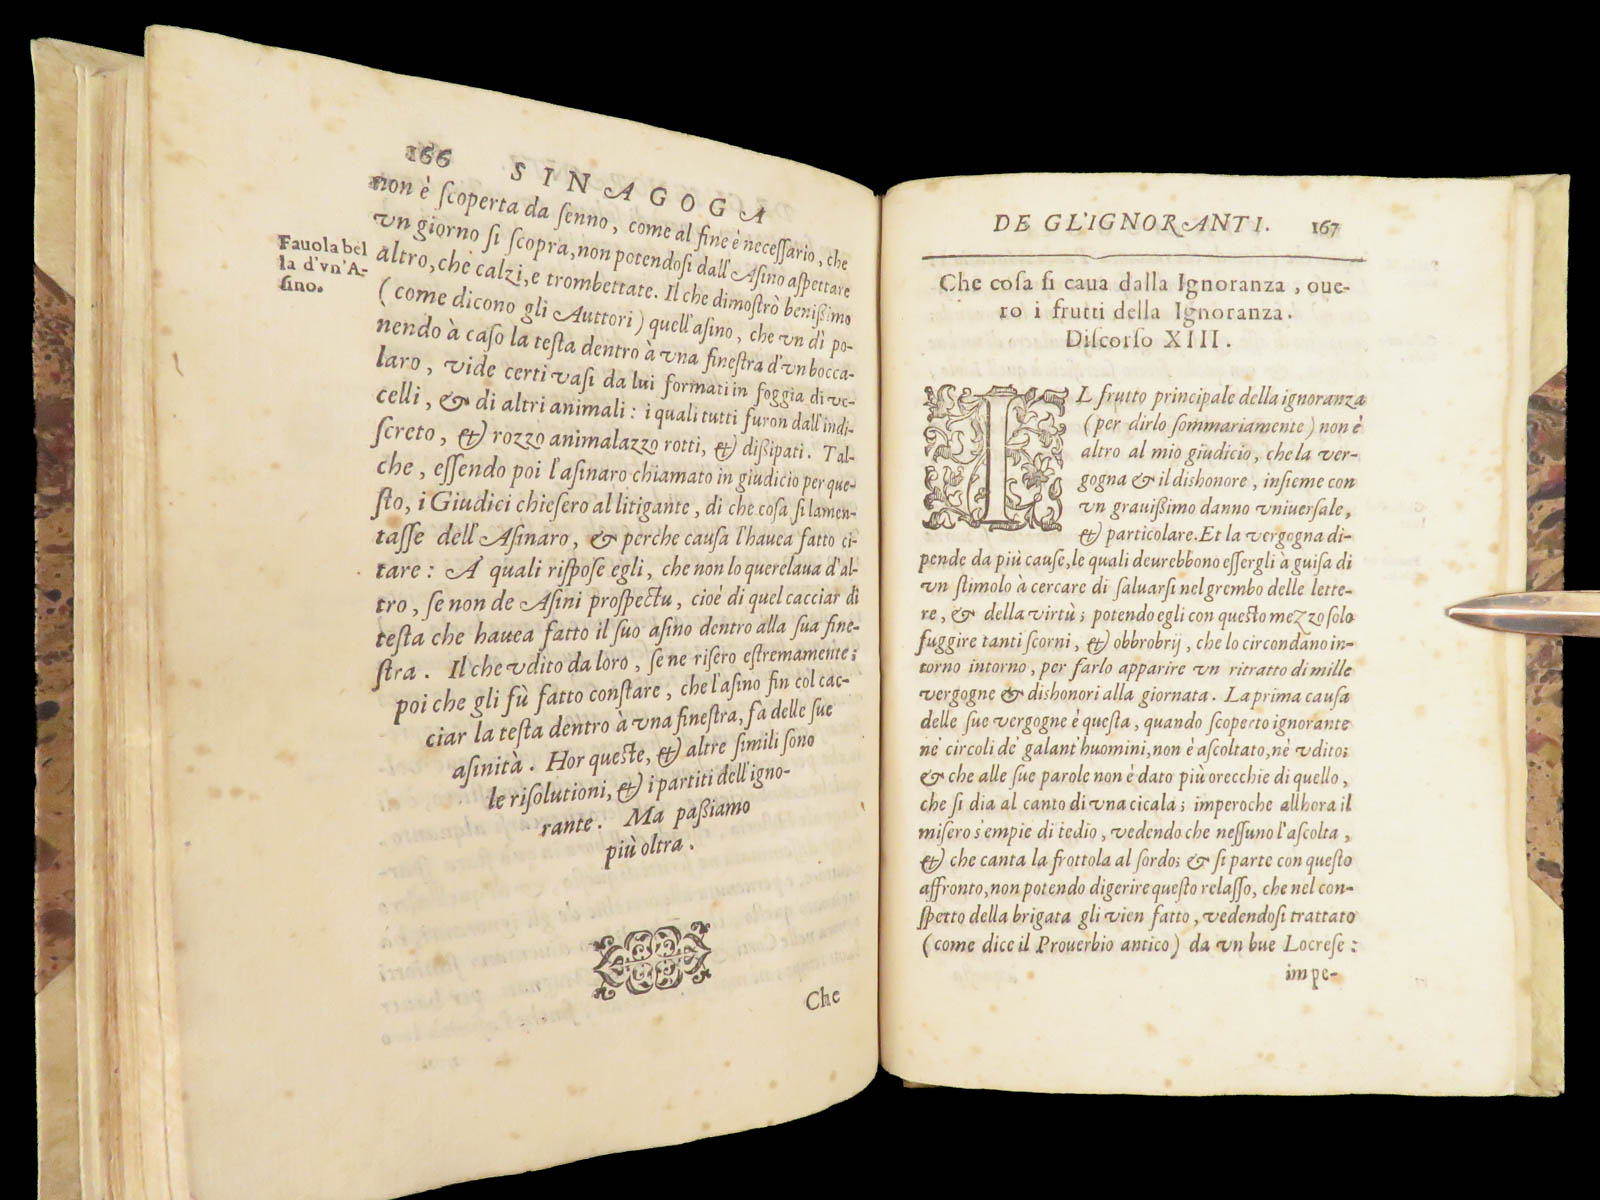 166 SINAGOGA
non è ſcoperta da ſenno, come al fine è neceſſario, che
vn giorno ſi ſcopra, non potendoſi dall'Aſino aſpettare
altro, che calzi, e trombettate. Il che dimoſtrò beniſsimo
(come dicono gli Auttori) quell'aſino, che vn dì po-
nendo à caſo la teſta dentro à vna fineſtra d'vn bocca-
laro, vide certi vaſi da lui formati in foggia di vc-
celli, & di altri animali: i quali tutti furon dall'indi-
ſcreto, & rozzo animalazzo rotti, & diſsipati. Tal-
che, eſſendo poi l'aſinaro chiamato in giudicio per que-
ſto, i Giudici chieſero al litigante, di che coſa ſi lamen-
taſſe dell'Aſinaro, & perche cauſa l'hauea fatto ci-
tare: A quali riſpoſe egli, che non lo querelaua d'al-
tro, ſe non de Aſini proſpectu, cioè di quel cacciar di
teſta che hauea fatto il ſuo aſino dentro alla ſua fine-
ſtra. Il che vdito da loro, ſe ne riſero eſtremamente;
poi che gli fù fatto conſtare, che l'aſino fin col cac-
ciar la teſta dentro à vna fineſtra, fa delle ſue
aſinità. Hor queſte, & altre ſimili ſono
le riſolutioni, & i partiti dell'igno-
rante. Ma paſsiamo
più oltra.
Che
Fauola bel
la d'vn'A-
ſino.
DE GL'IGNORANTI. 167
Che coſa ſi caua dalla Ignoranza, oue-
ro i frutti della Ignoranza.
Diſcorſo XIII.
IL frutto principale della ignoranza
(per dirlo ſommariamente) non è
altro al mio giudicio, che la ver-
gogna & il dishonore, inſieme con
vn grauiſsimo danno vniuerſale,
& particolare. Et la vergogna di-
pende da più cauſe, le quali deurebbono eſſergli à guiſa di
vn ſtimolo à cercare di ſaluarſi nel grembo delle lette-
re, & della virtù; potendo egli con queſto mezzo ſolo
fuggire tanti ſcorni, & obbrobrij, che lo circondano in-
torno intorno, per farlo apparire vn ritratto di mille
vergogne & dishonori alla giornata. La prima cauſa
delle ſue vergogne è queſta, quando ſcoperto ignorante
nè circoli de' galant'huomini, non è aſcoltato, nè vdito;
& che alle ſue parole non è dato più orecchie di quello,
che ſi dia al canto di vna cicala; imperoche allhora il
miſero s'empie di tedio, vedendo che neſſuno l'aſcolta,
& che canta la frottola al ſordo; & ſi parte con queſto
affronto, non potendo digerire queſto relaſſo, che nel con-
ſpetto della brigata gli vien fatto, vedendoſi trattato
(come dice il Prouerbio antico) da vn bue Locreſe:
impe-